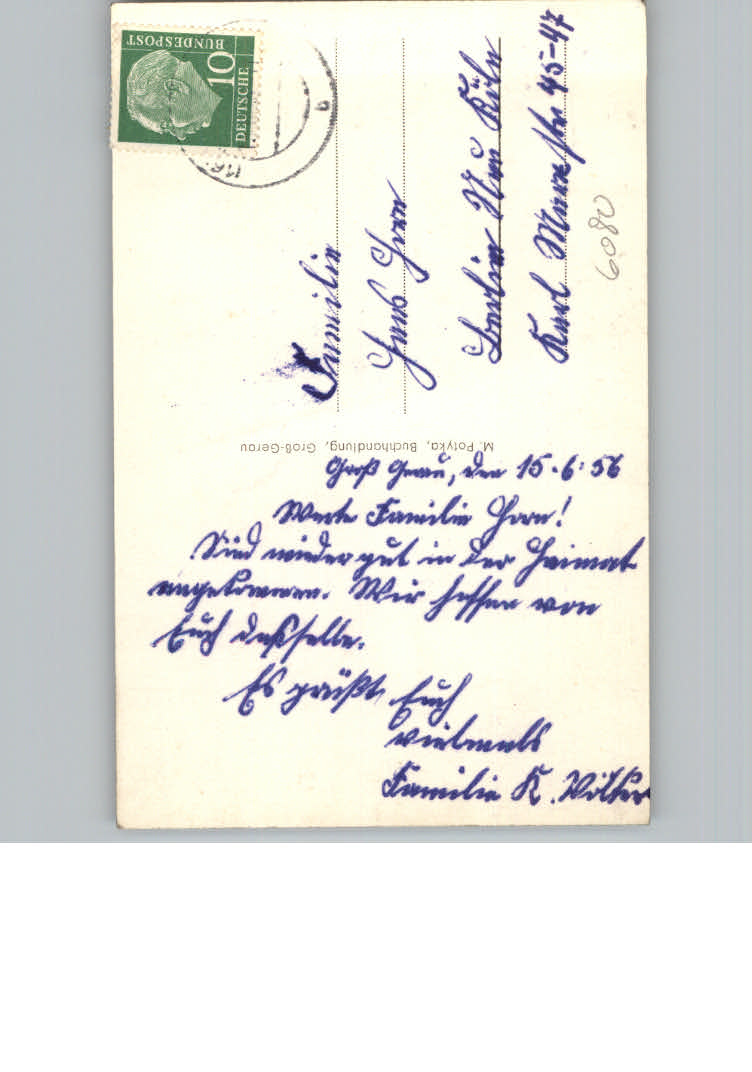 DEUTSCHE
BUNDESPOST
10
Familie
Hans Horn
Berlin Neu Köln
Karl Marx str 45-47
6080
M. Potyka, Buchhandlung, Groß-Gerau
Groß Gerau, den 15.6.56
Werte Familie Horn!
Sind wieder gut in der Heimat
angekommen. Wir hoffen von
Euch dasselbe.
Es grüßt Euch
vielmals
Familie K.